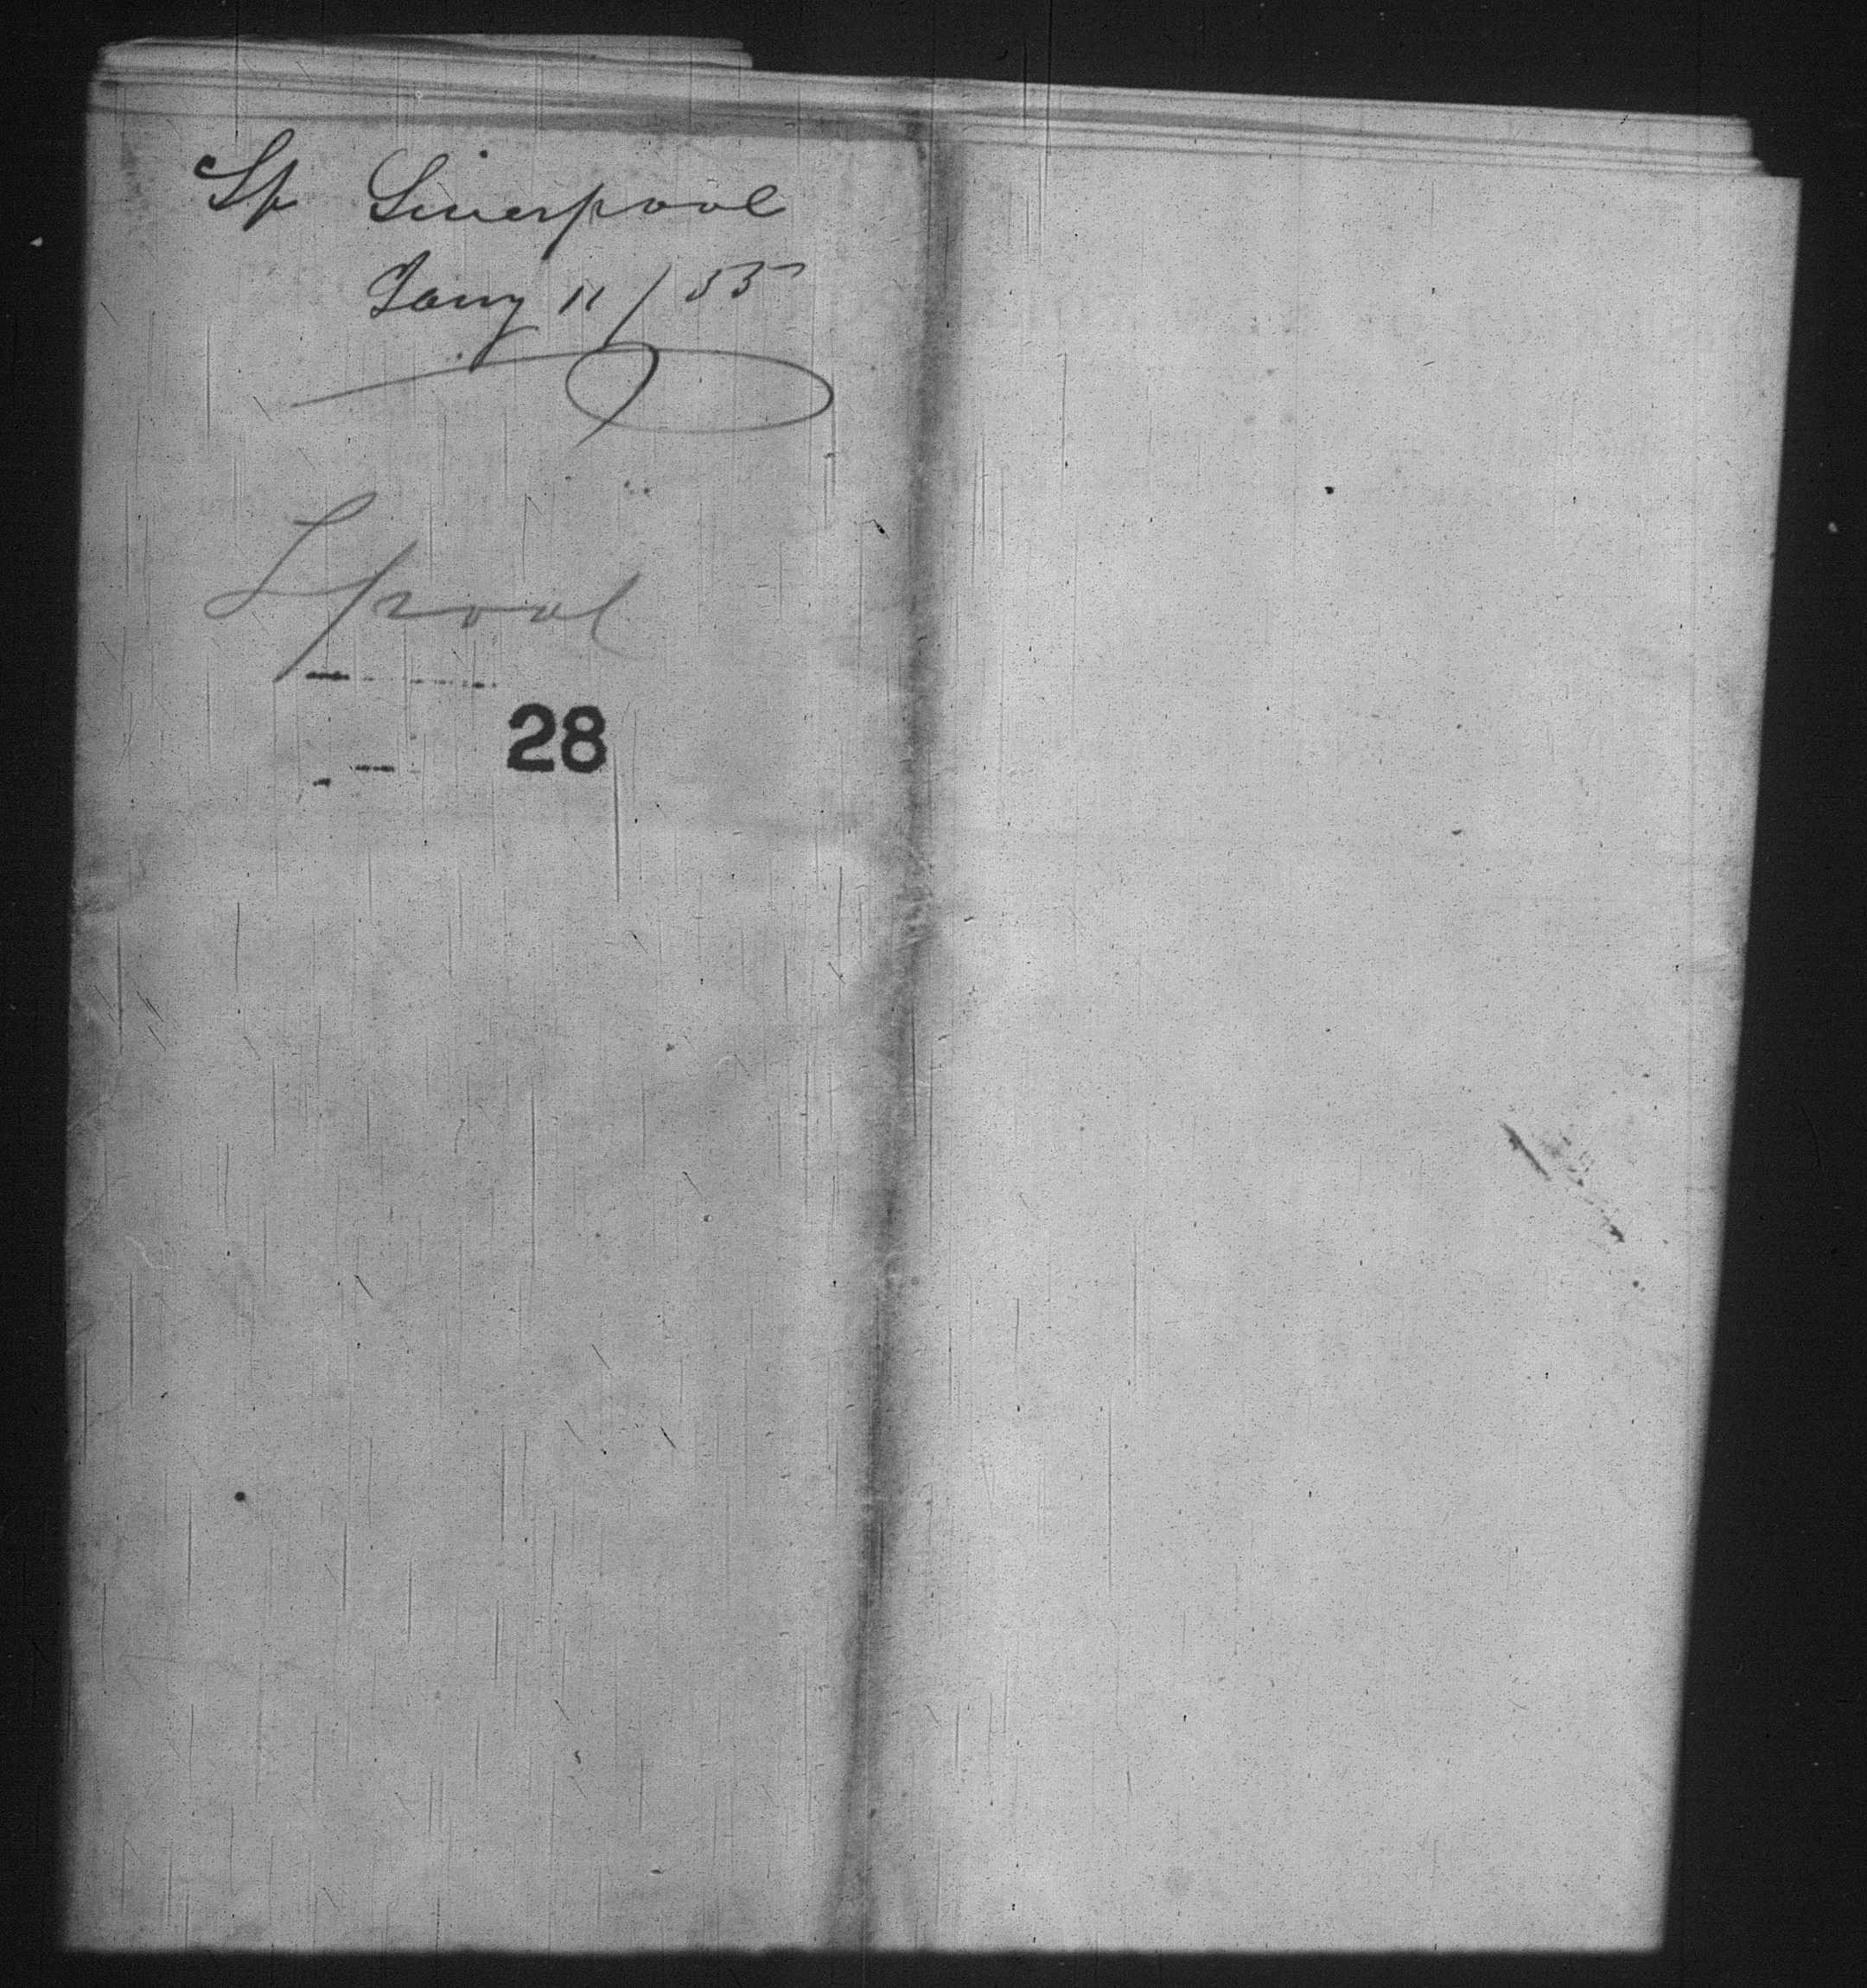 Sp Liverpool
Jany 11/55
Lpool
28